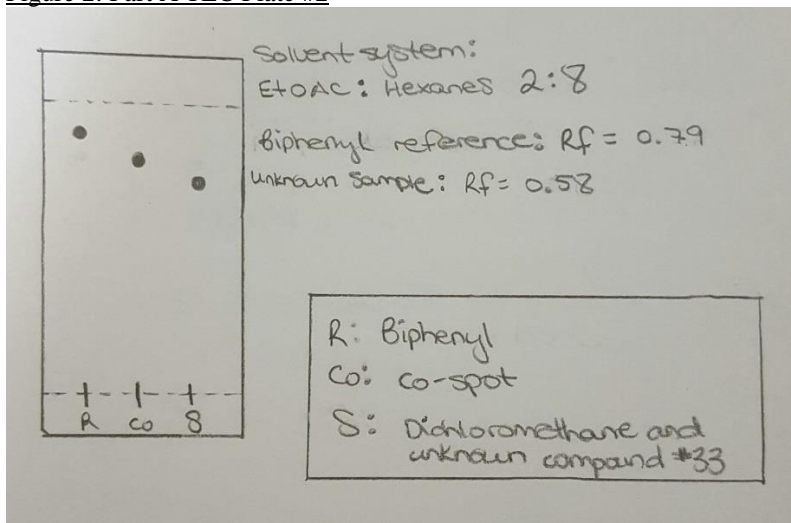 Solvent system:
EtOAC: Hexanes 2:8
Biphenyl reference: Rf = 0.79
unknown Sample: Rf= 0.58
R: Biphenyl
Co: co-spot
S: Dichloromethane and
unknown compound #33
R Co S